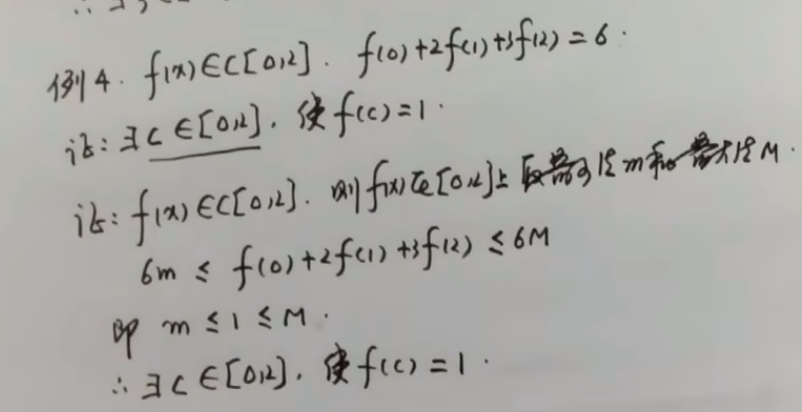 例4. f(x)∈C[0,2]. f(0)+2f(1)+3f(2)=6.
证:∃c∈[0,2]. 使f(c)=1.
证:f(x)∈C[0,2]. 则f(x)在[0,2]上取最小值m和最大值M.
6m ≤ f(0)+2f(1)+3f(2) ≤ 6M
即 m ≤ 1 ≤ M.
∴∃c∈[0,2]. 使f(c)=1.